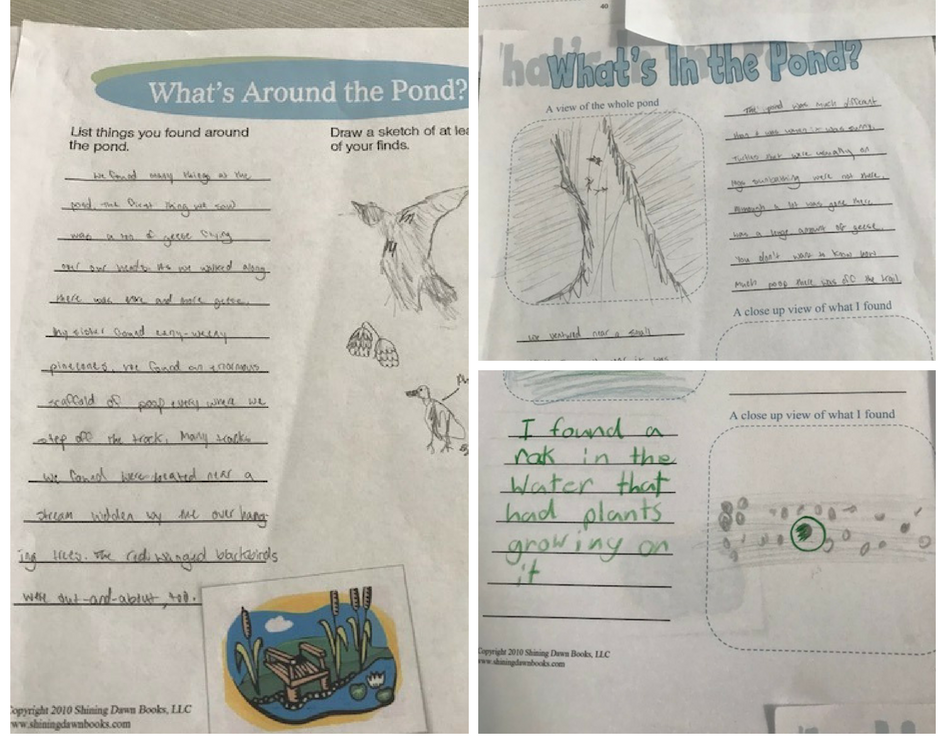 What's Around the Pond?
List things you found around
the pond.
Draw a sketch of at lea
of your finds.
We found many things at the
pond. The first thing we saw
was a ton of geese flying
over our heads. As we walked along
there was more and more geese.
My sister found eeny-weeny
pinecones. We found an enormous
scaffold of poop every where we
step off the track. Many tracks
we found were located near a
stream hidden by the over hang-
ing trees. The red winged blackbirds
were out-and-about, too.
Copyright 2010 Shining Dawn Books, LLC
www.shiningdawnbooks.com
40
What's In the Pond?
A view of the whole pond
The pond was much different
than it was when it was sunny.
Turtles that were usually on
logs sunbathing were not there.
Although a lot was gone there
was a huge amount of geese.
You don't want to know how
much poop there was off the trail.
A close up view of what I found
We ventured near a small
I found a
rak in the
Water that
had plants
growing on
it
A close up view of what I found
Copyright 2010 Shining Dawn Books, LLC
www.shiningdawnbooks.com